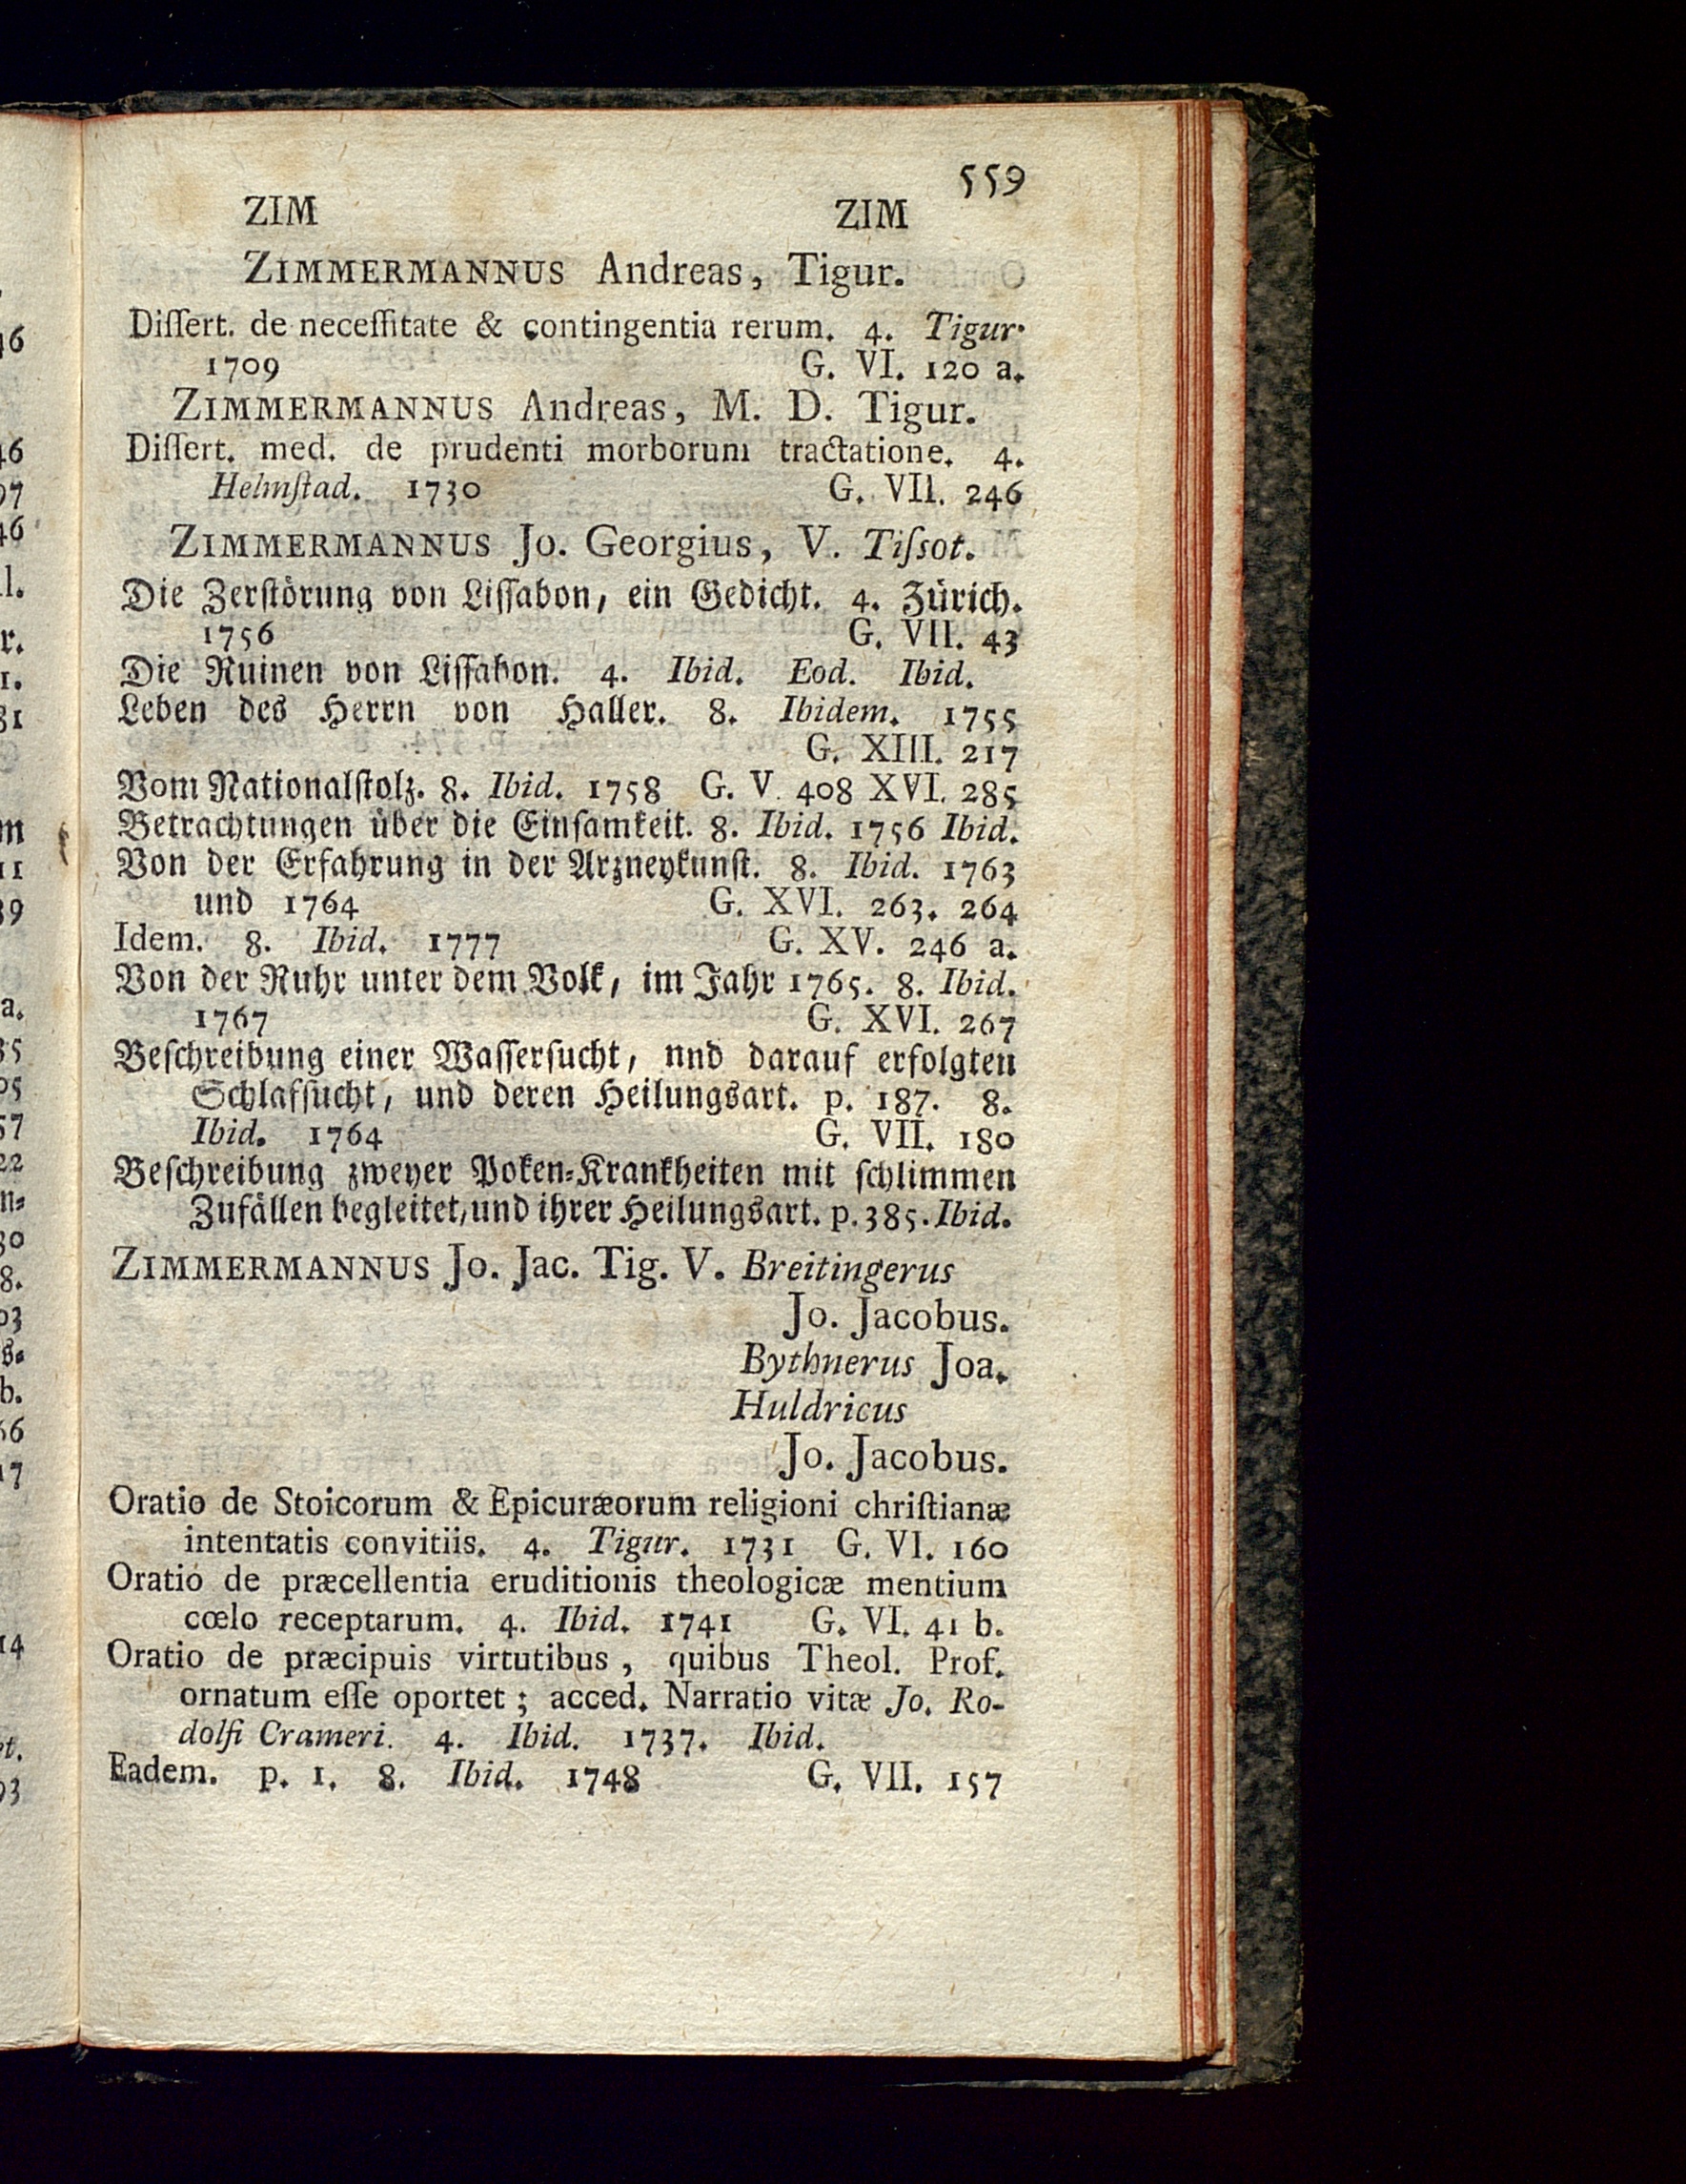 559
ZIM ZIM
ZIMMERMANNUS Andreas, Tigur.
Diſſert. de neceſſitate & contingentia rerum. 4. Tigur.
1709 G. VI. 120 a.
ZIMMERMANNUS Andreas, M. D. Tigur.
Diſſert. med. de prudenti morborum tractatione. 4.
Helmſtad. 1730 G. VII. 246
ZIMMERMANNUS Jo. Georgius, V. Tiſsot.
Die Zerſtörung von Liſſabon, ein Gedicht. 4. Zürich.
1756 G. VII. 43
Die Ruinen von Liſſabon. 4. Ibid. Eod. Ibid.
Leben des Herrn von Haller. 8. Ibidem. 1755
G. XIII. 217
Vom Nationalſtolz. 8. Ibid. 1758 G. V. 408 XVI. 285
Betrachtungen über die Einſamkeit. 8. Ibid. 1756 Ibid.
Von der Erfahrung in der Arzneykunſt. 8. Ibid. 1763
und 1764 G. XVI. 263. 264
Idem. 8. Ibid. 1777 G. XV. 246 a.
Von der Ruhr unter dem Volk, im Jahr 1765. 8. Ibid.
1767 G. XVI. 267
Beſchreibung einer Waſſerſucht, nnd darauf erfolgten
Schlafſucht, und deren Heilungsart. p. 187. 8.
Ibid. 1764 G. VII. 180
Beſchreibung zweyer Poken-Krankheiten mit ſchlimmen
Zufällen begleitet, und ihrer Heilungsart. p. 385. Ibid.
ZIMMERMANNUS Jo. Jac. Tig. V. Breitingerus
Jo. Jacobus.
Bythnerus Joa.
Huldricus
Jo. Jacobus.
Oratio de Stoicorum & Epicuræorum religioni chriſtianæ
intentatis convitiis. 4. Tigur. 1731 G. VI. 160
Oratio de præcellentia eruditionis theologicæ mentium
cœlo receptarum. 4. Ibid. 1741 G. VI. 41 b.
Oratio de præcipuis virtutibus, quibus Theol. Prof.
ornatum eſſe oportet; acced. Narratio vitæ Jo. Ro-
dolfi Crameri. 4. Ibid. 1737. Ibid.
Eadem. p. 1. 8. Ibid. 1748 G. VII. 157